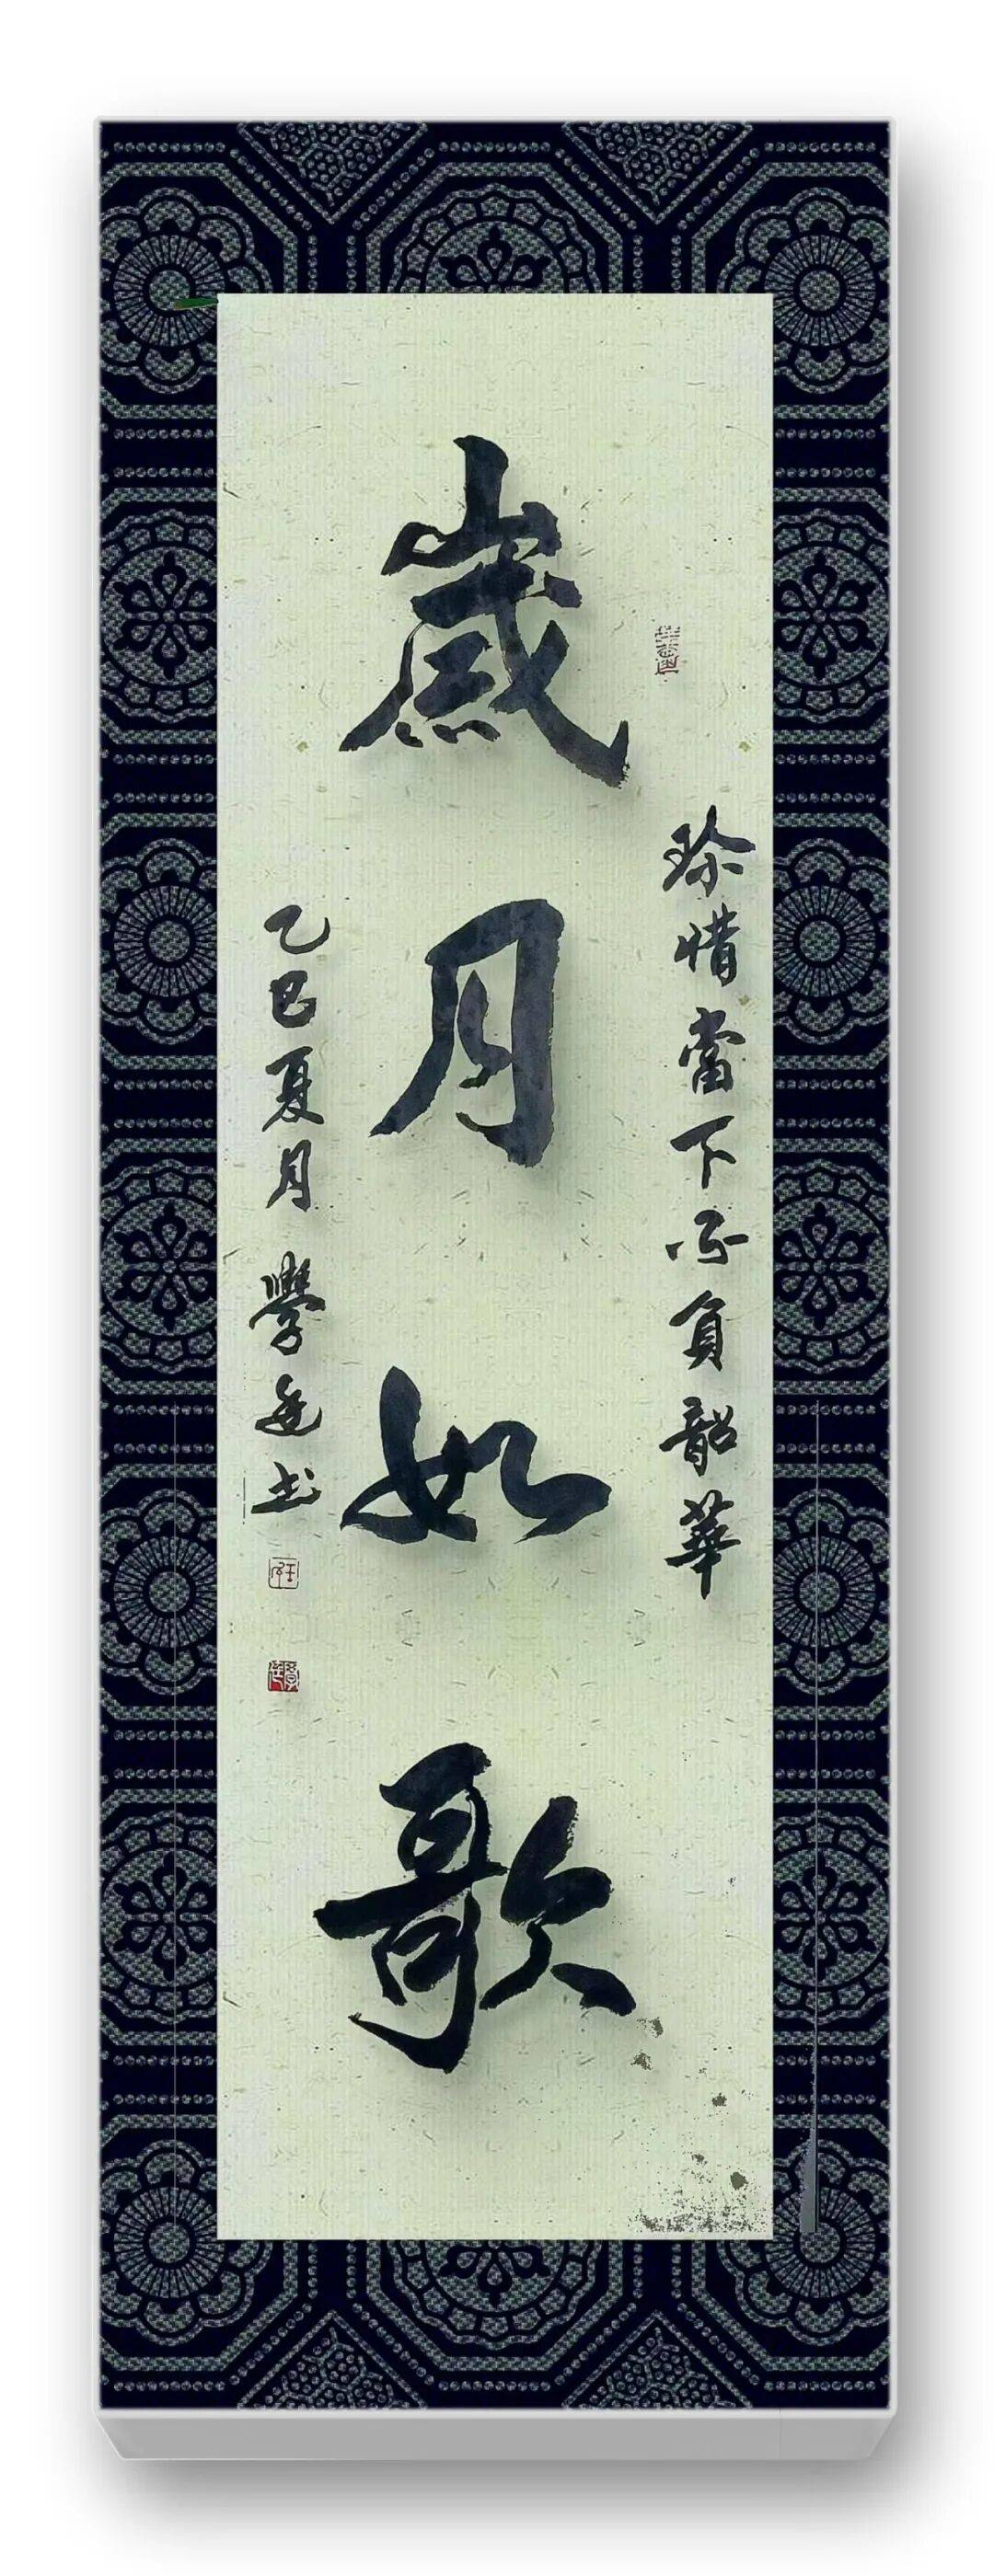 珍惜當下不負韶華
歲月如歌
乙巳夏月 學书